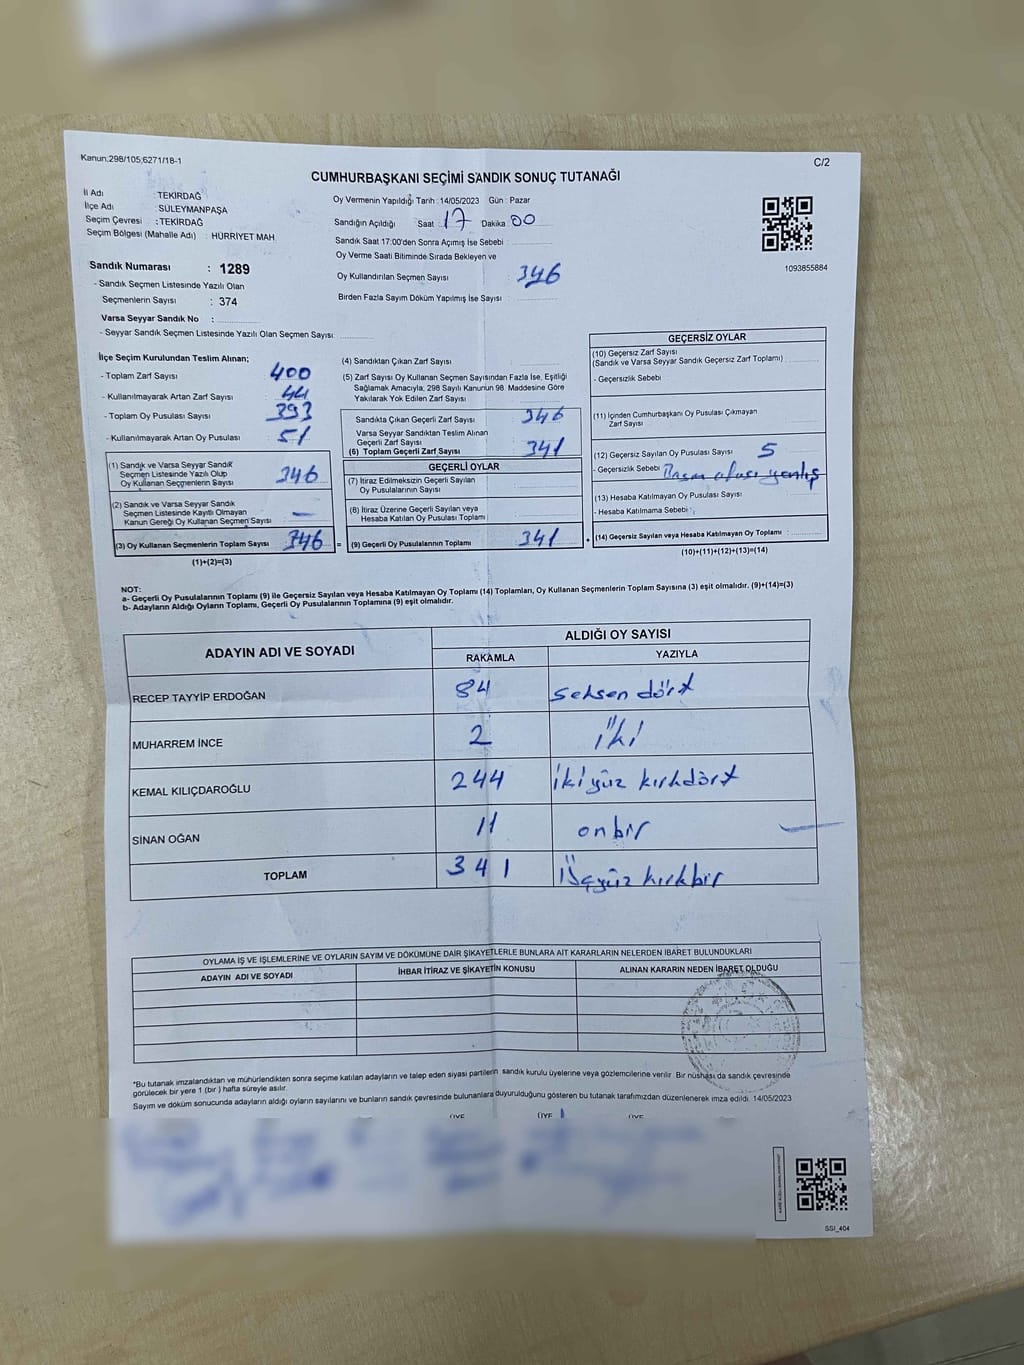 Kanun.298/105,6271/18-1
C/2
CUMHURBAŞKANI SEÇİMİ SANDIK SONUÇ TUTANAĞI
İl Adı : TEKİRDAĞ
İlçe Adı : SÜLEYMANPAŞA
Seçim Çevresi : TEKİRDAĞ
Seçim Bölgesi (Mahalle Adı) : HÜRRİYET MAH
Oy Vermenin Yapıldığı Tarih : 14/05/2023 Gün : Pazar
Sandığın Açıldığı Saat 17 Dakika 00
Sandık Saat 17:00'den Sonra Açımış İse Sebebi :
Oy Verme Saati Bitiminde Sırada Bekleyen ve
Oy Kullandırılan Seçmen Sayısı : 346
Birden Fazla Sayım Döküm Yapılmış İse Sayısı :
1093855884
Sandık Numarası : 1289
- Sandık Seçmen Listesinde Yazılı Olan
Seçmenlerin Sayısı : 374
Varsa Seyyar Sandık No :
- Seyyar Sandık Seçmen Listesinde Yazılı Olan Seçmen Sayısı :
İlçe Seçim Kurulundan Teslim Alınan;
- Toplam Zarf Sayısı 400
- Kullanılmayarak Artan Zarf Sayısı 44
- Toplam Oy Pusulası Sayısı 393
- Kullanılmayarak Artan Oy Pusulası 51
(1) Sandık ve Varsa Seyyar Sandık
Seçmen Listesinde Yazılı Olup
Oy Kullanan Seçmenlerin Sayısı 346
(2) Sandık ve Varsa Seyyar Sandık
Seçmen Listesinde Kayıtlı Olmayan
Kanun Gereği Oy Kullanan Seçmen Sayısı —
(3) Oy Kullanan Seçmenlerin Toplam Sayısı 346 =
(1)+(2)=(3)
(4) Sandıktan Çıkan Zarf Sayısı
(5) Zarf Sayısı Oy Kullanan Seçmen Sayısından Fazla İse, Eşitliği
Sağlamak Amacıyla, 298 Sayılı Kanunun 98. Maddesine Göre
Yakılarak Yok Edilen Zarf Sayısı
Sandıkta Çıkan Geçerli Zarf Sayısı 346
Varsa Seyyar Sandıktan Teslim Alınan
Geçerli Zarf Sayısı
(6) Toplam Geçerli Zarf Sayısı 341
GEÇERLİ OYLAR
(7) İtiraz Edilmeksizin Geçerli Sayılan
Oy Pusulalarının Sayısı
(8) İtiraz Üzerine Geçerli Sayılan veya
Hesaba Katılan Oy Pusulası Toplamı
(9) Geçerli Oy Pusulalarının Toplamı 341 +
GEÇERSİZ OYLAR
(10) Geçersiz Zarf Sayısı
(Sandık ve Varsa Seyyar Sandık Geçersiz Zarf Toplamı)
- Geçersizlik Sebebi
(11) İçinden Cumhurbaşkanı Oy Pusulası Çıkmayan
Zarf Sayısı
(12) Geçersiz Sayılan Oy Pusulası Sayısı 5
- Geçersizlik Sebebi yanlış
(13) Hesaba Katılmayan Oy Pusulası Sayısı
- Hesaba Katılmama Sebebi :
(14) Geçersiz Sayılan veya Hesaba Katılmayan Oy Toplamı :
(10)+(11)+(12)+(13)=(14)
NOT:
a- Geçerli Oy Pusulalarının Toplamı (9) ile Geçersiz Sayılan veya Hesaba Katılmayan Oy Toplamı (14) Toplamları, Oy Kullanan Seçmenlerin Toplam Sayısına (3) eşit olmalıdır. (9)+(14)=(3)
b- Adayların Aldığı Oyların Toplamı, Geçerli Oy Pusulalarının Toplamına (9) eşit olmalıdır.
ADAYIN ADI VE SOYADI
ALDIĞI OY SAYISI
RAKAMLA YAZIYLA
RECEP TAYYİP ERDOĞAN 84 seksen dört
MUHARREM İNCE 2 iki
KEMAL KILIÇDAROĞLU 244 ikiyüz kırkdört
SİNAN OĞAN 11 onbir
TOPLAM 341 üçyüz kırkbir
OYLAMA İŞ VE İŞLEMLERİNE VE OYLARIN SAYIM VE DÖKÜMÜNE DAİR ŞİKAYETLERLE BUNLARA AİT KARARLARIN NELERDEN İBARET BULUNDUKLARI
ADAYIN ADI VE SOYADI İHBAR İTİRAZ VE ŞİKAYETİN KONUSU ALINAN KARARIN NEDEN İBARET OLDUĞU
*Bu tutanak imzalandıktan ve mühürlendikten sonra seçime katılan adayların ve talep eden siyasi partilerin sandık kurulu üyelerine veya gözlemcilerine verilir. Bir nüshası da sandık çevresinde
görülecek bir yere 1 (bir) hafta süreyle asılır.
Sayım ve döküm sonucunda adayların aldığı oyların sayılarını ve bunların sandık çevresinde bulunanlara duyurulduğunu gösteren bu tutanak tarafımızdan düzenlenerek imza edildi. 14/05/2023
ÜYE ÜYE ÜYE
SSİ_404